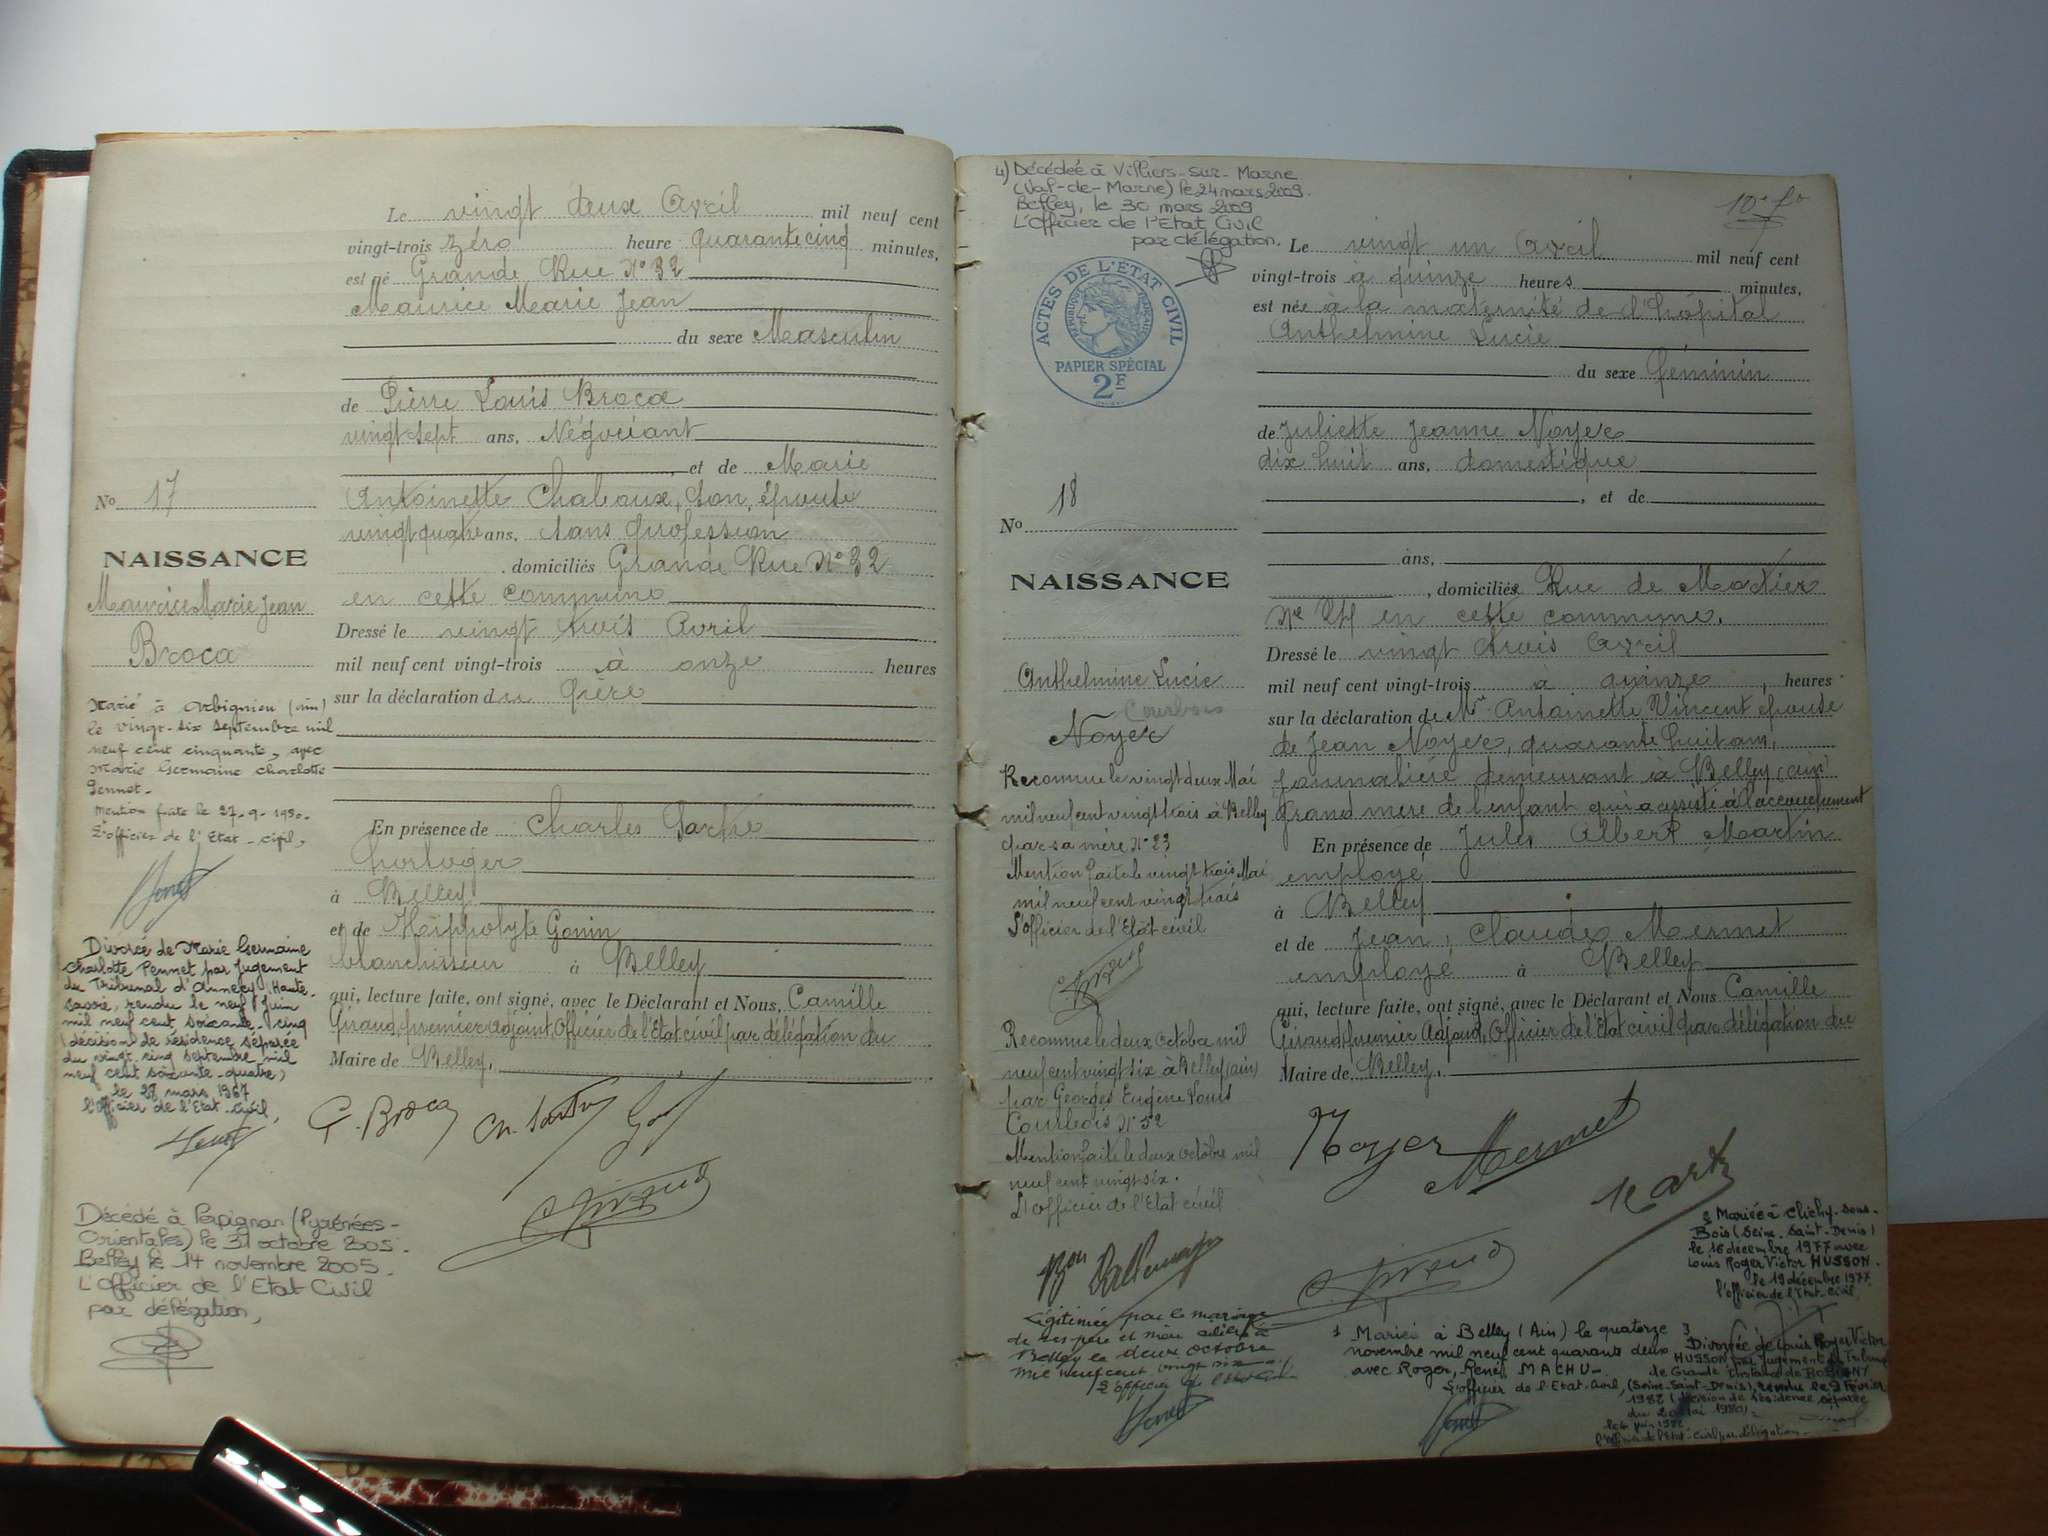 Le vingt deux Avril mil neuf cent
vingt-trois zéro heure quarante cinq minutes,
est né Grande Rue N° 32
Maurice Marie Jean
du sexe Masculin
de Pierre Louis Broca
vingt sept ans, Négociant
, et de Marie
Antoinette Chabaux, son épouse
vingt quatre ans, sans profession
, domiciliés Grande Rue N° 32
en cette commune
Dressé le vingt trois Avril
mil neuf cent vingt-trois à onze heures
sur la déclaration du père
En présence de Charles
horloger
à Belley
et de Hippolyte Gonin
blanchisseur à Belley
qui, lecture faite, ont signé, avec le Déclarant et Nous, Camille
Giraud, premier Adjoint, Officier de l'Etat civil par délégation du
Maire de Belley,
P. Broca
C. Giraud
No 17
NAISSANCE
Maurice Marie Jean
Broca
Marié à Arbignieu (ain)
le vingt-six septembre mil
neuf cent cinquante, avec
Marie Germaine Charlotte
Pennet.
Mention faite le 27-9-1950.
L'officier de l'Etat-civil,
Divorcé de Marie Germaine
Charlotte Pennet par Jugement
du Tribunal d'Annecy, Haute-
savoie, rendu le neuf juin
mil neuf cent soixante-cinq
(décision de résidence séparée
du vingt cinq septembre mil
neuf cent soixante-quatre)
le mars 1967
l'officier de l'Etat-civil,
Décédé à Perpignan (Pyrénées-
Orientales) le 31 octobre 2005.
Belley le 14 novembre 2005.
L'Officier de l'Etat Civil
par délégation,
4) Décédée à Villiers-sur-Marne
(Val-de-Marne) le 24 mars 2009.
Belley, le 30 mars 2009
L'Officier de l'Etat Civil
par délégation.
10e fo
ACTES DE L'ÉTAT CIVIL
RÉPUBLIQUE FRANÇAISE
PAPIER SPÉCIAL
2F
Le vingt un Avril mil neuf cent
vingt-trois à quinze heures minutes,
est née à la maternité de l'hôpital
Anthelmine Lucie
du sexe féminin
de Juliette Jeanne Noyer
dix huit ans, domestique
, et de
ans,
, domiciliée Rue de
N° 24 en cette commune.
Dressé le vingt trois Avril
mil neuf cent vingt-trois à quinze heures
sur la déclaration de Me Antoinette Vincent épouse
de Jean Noyer, quarante huit ans,
journalière demeurant à Belley (ain)
grand mère de l'enfant qui a assisté à l'accouchement
En présence de Jules Albert Martin
employé
à Belley
et de Jean, Claude Mermet
employé à Belley
qui, lecture faite, ont signé, avec le Déclarant et Nous Camille
Giraud premier Adjoint, Officier de l'Etat civil par délégation du
Maire de Belley,
Noyer Mermet
Martin
C. Giraud
No 18
NAISSANCE
Anthelmine Lucie
Courbois
Noyer
Reconnue le vingt deux Mai
mil neuf cent vingt trois à Belley
par sa mère N° 23
Mention faite le vingt trois Mai
mil neuf cent vingt trois
L'officier de l'Etat civil
Reconnue le deux octobre mil
neuf cent vingt six à Belley (ain)
par Georges Eugène Louis
Courbois N° 52
Mention faite le deux octobre mil
neuf cent vingt six.
L'officier de l'Etat civil
Légitimée par le mariage
de ses père et mère célébré à
Belley le deux octobre
mil neuf cent vingt six
L'officier de l'Etat civil
1 Mariée à Belley (Ain) le quatorze
novembre mil neuf cent quarante deux
avec Roger, René, MACHU-
L'officier de l'Etat-Civil,
2 Mariée à Clichy-sous-
Bois (Seine-Saint-Denis)
le 16 décembre 1977 avec
Louis Roger Victor HUSSON.
le 19 décembre 1977.
l'officier de l'Etat-Civil,
3 Divorcée de Louis Roger Victor
HUSSON par Jugement du Tribunal
de Grande Instance de BOBIGNY
(Seine-Saint-Denis), rendu le 9 Février
1982 (décision de résidence séparée
du 20 Mai 1980).
le 4 juin 1982
l'officier de l'Etat-civil par délégation.